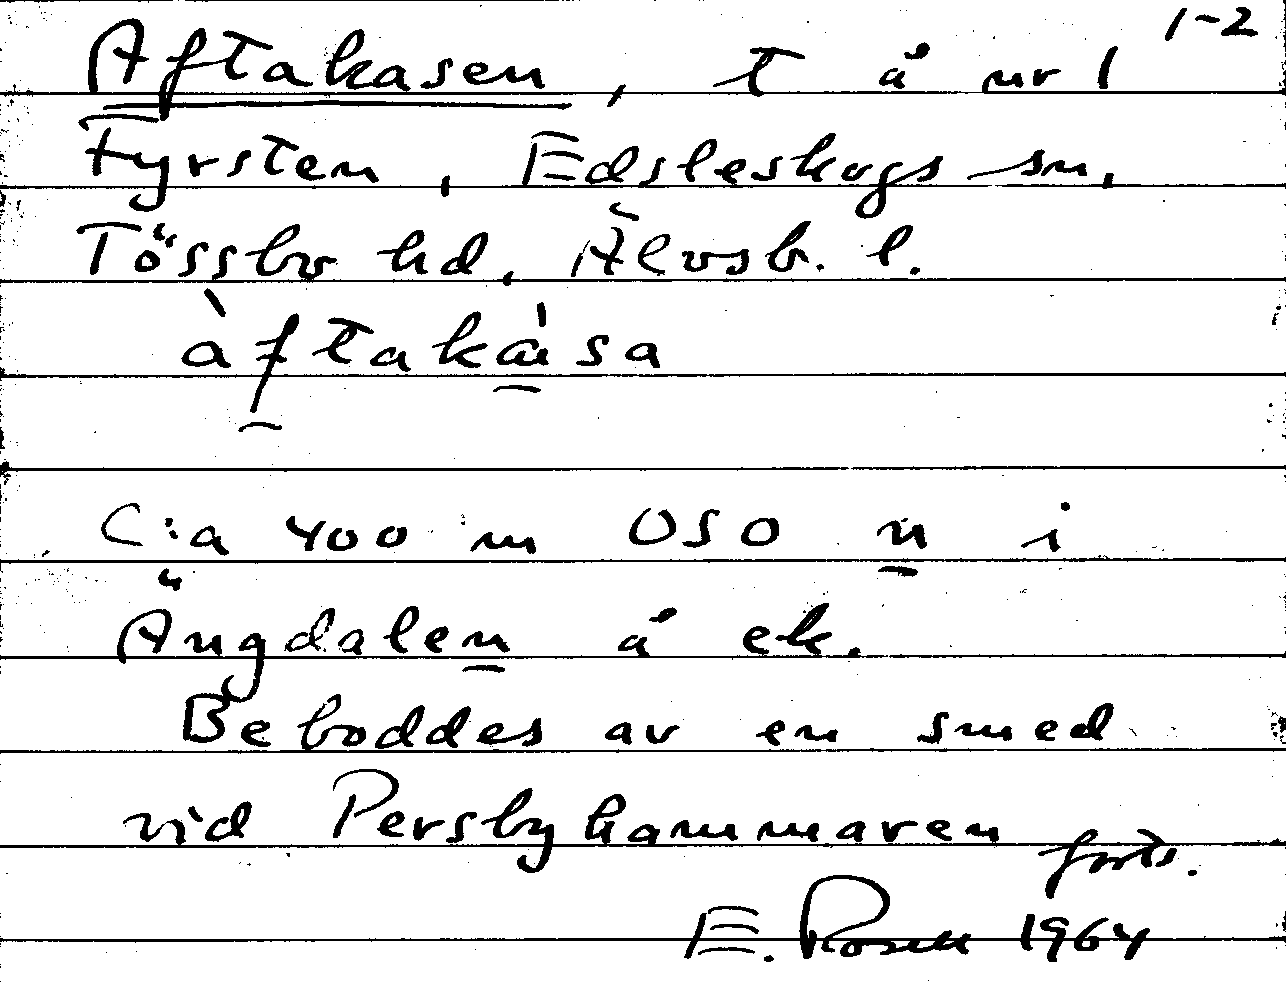 1-2
Aftakasen, t å nr 1
Fyrsten, Edsleskogs sn,
Tössbo hd, Älvsb. l.
àftakàsa
C:a 400 m OSO n i
Ängdalen å ek.
Beboddes av en smed
vid Persbyhammaren forts.
E. Rosell 1964